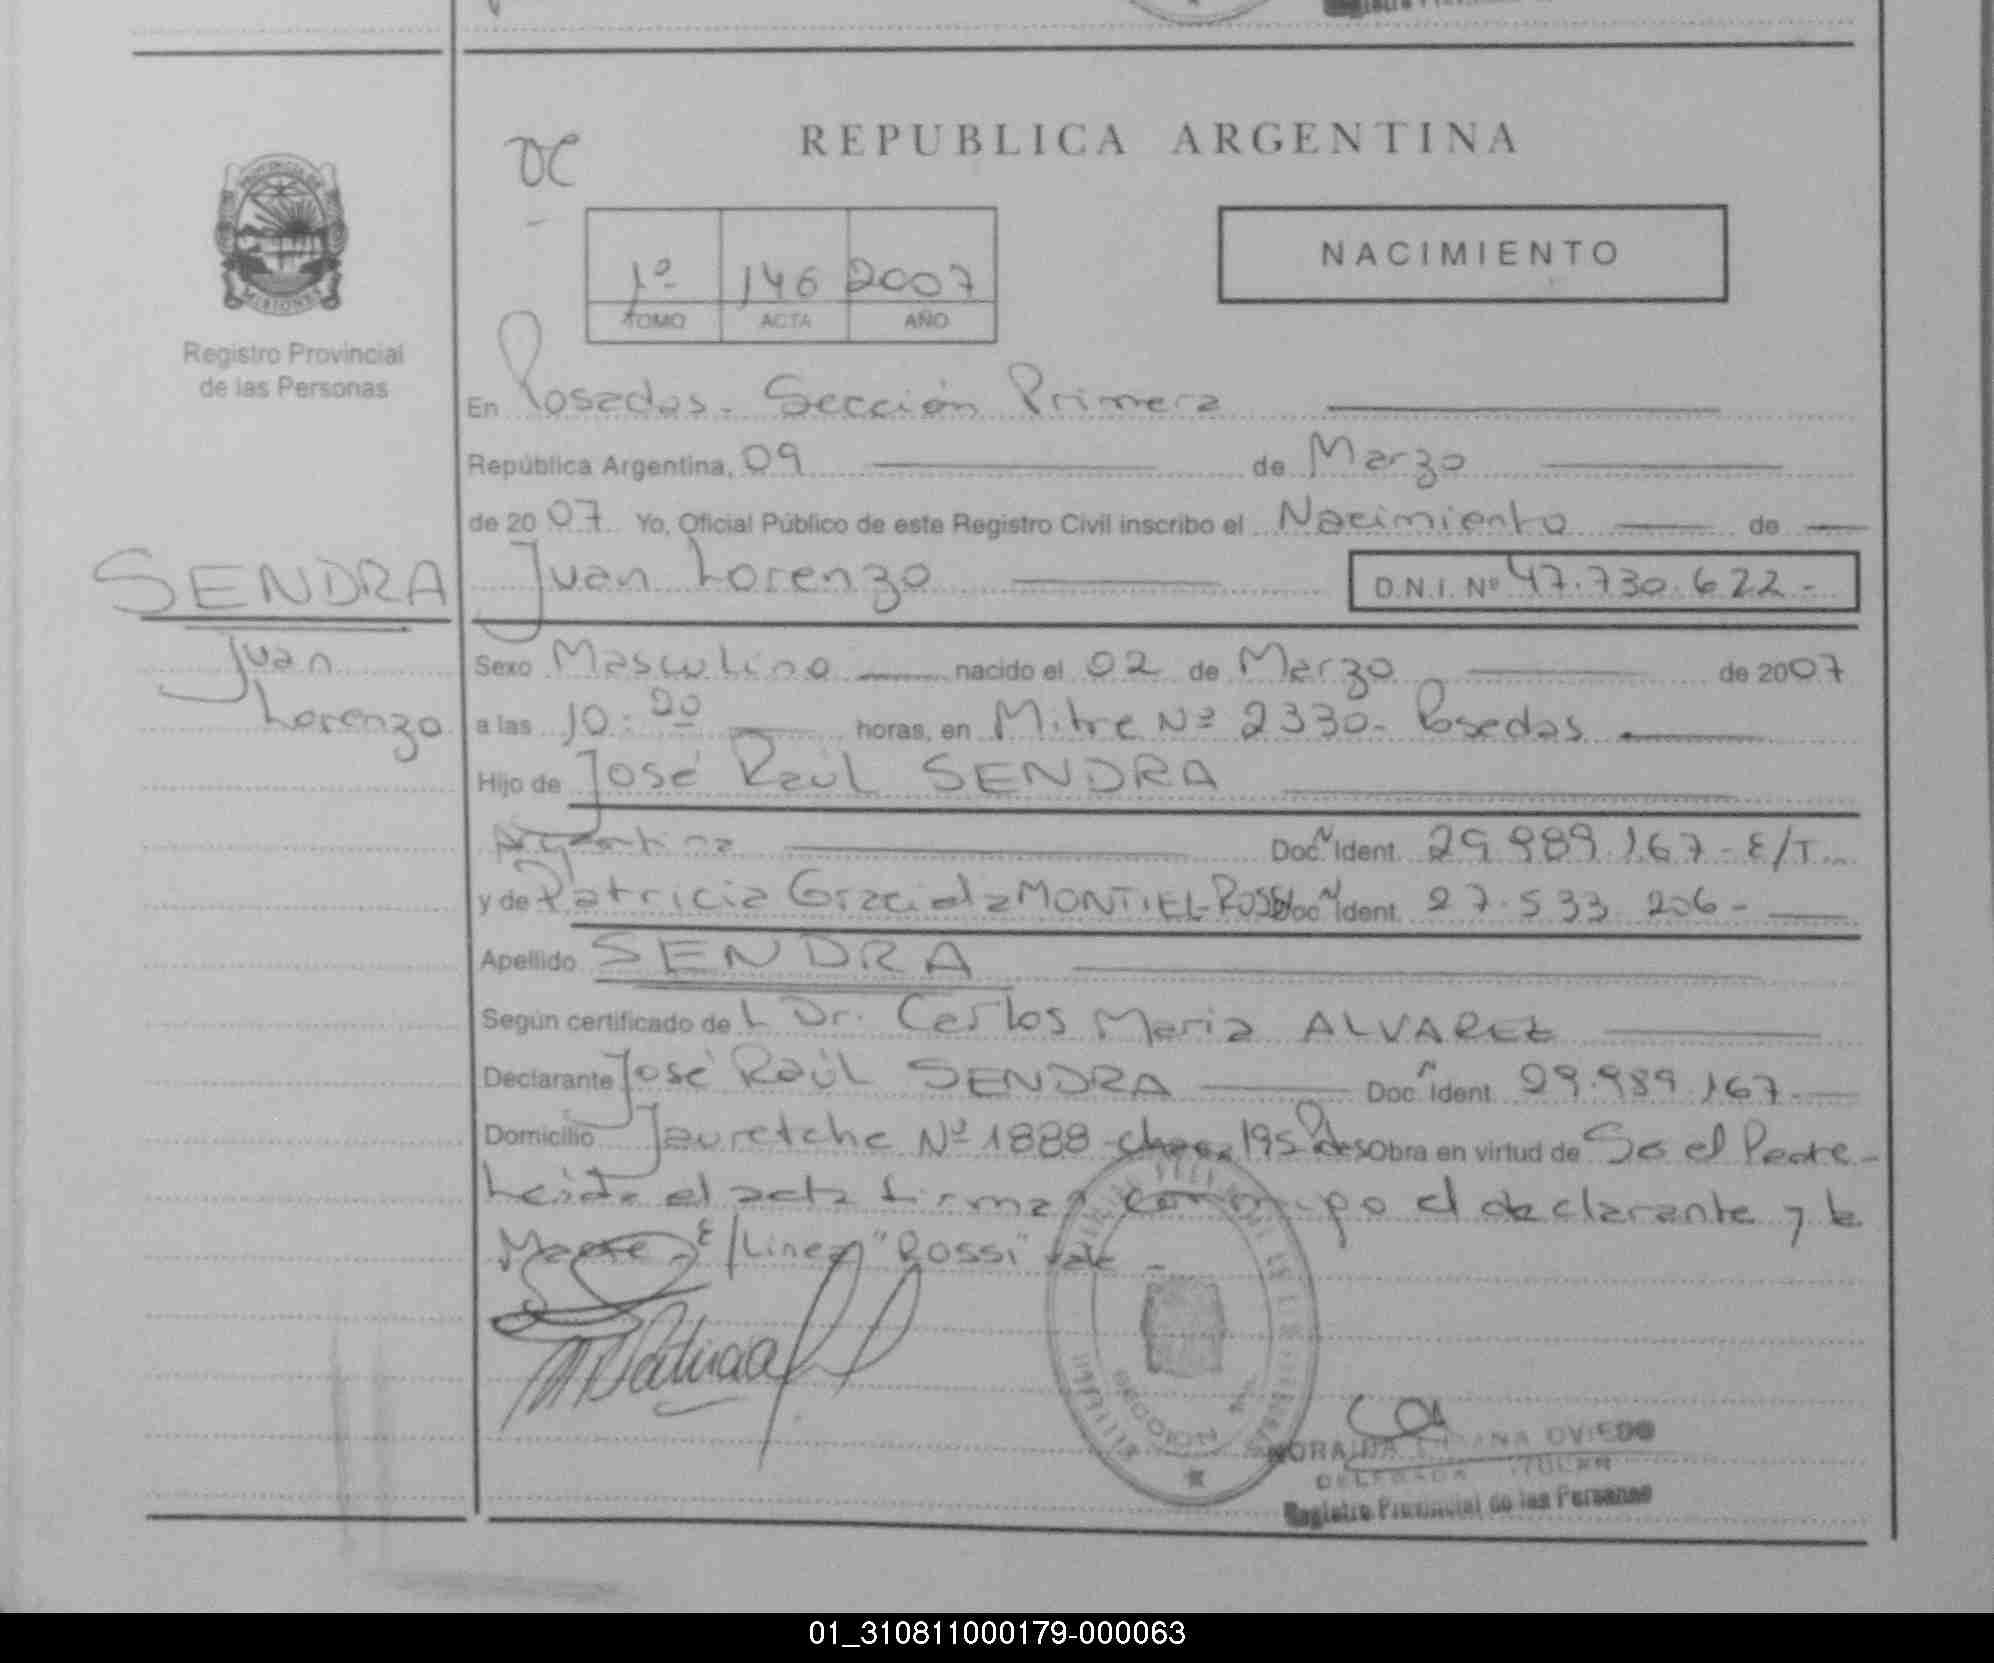 REPUBLICA ARGENTINA
NACIMIENTO
1º 146 2007
TOMO ACTA AÑO
PROVINCIA DE
MISIONES
Registro Provincial
de las Personas
En Posadas. Sección Primera
República Argentina, 09 de Marzo
de 2007 Yo, Oficial Público de este Registro Civil inscribo el Nacimiento de
SENDRA
Juan
Lorenzo
Juan Lorenzo D.N.I. Nº 47.730.622-
Sexo Masculino nacido el 02 de Marzo de 2007
a las 10:20 horas, en Mitre Nº 2330- Posadas
Hijo de José Raúl SENDRA
Argentina Doc. Ident. 29.989.167- E/T
y de Patricia Graciela MONTIEL-ROSSI Doc. Ident. 27.533.206-
Apellido SENDRA
Según certificado de L Dr. Carlos Maria ALVAREZ
Declarante José Raúl SENDRA Doc. Ident. 29.989.167-
Domicilio Jauretche Nº 1888- 195 Obra en virtud de el Padre-
Leida el acta firman conmigo el declarante y la
Madre- E/Linea "Rossi" vale-
SECCION
OVIEDO
DELEGADA TITULAR
Registro Provincial de las Personas
01_310811000179-000063